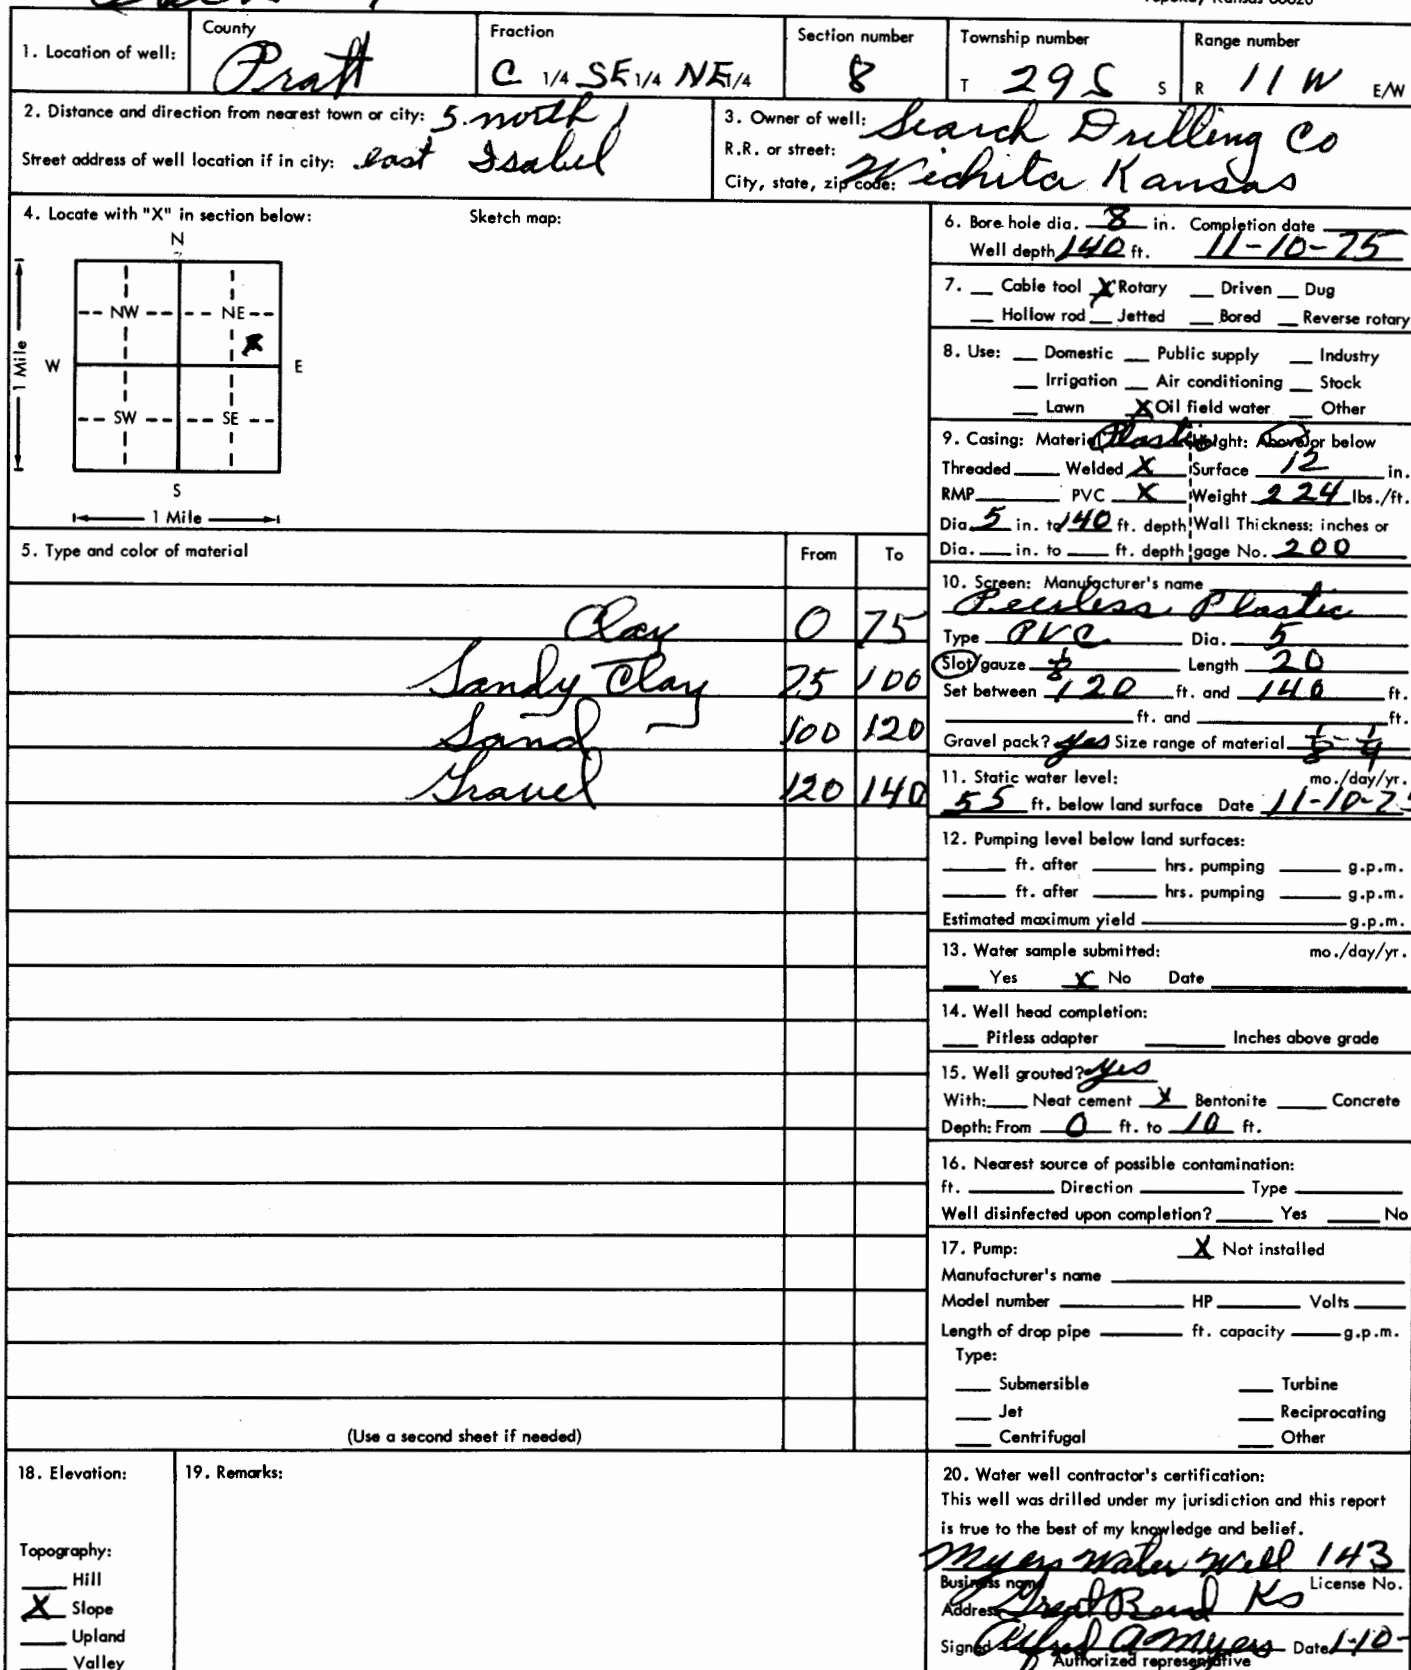 County Fraction Section number Township number Range number
1. Location of well: Pratt C 1/4 SE 1/4 NE 1/4 8 T 29 S S R 11 W E/W
2. Distance and direction from nearest town or city: 5 north 1
Street address of well location if in city: east Isabel
3. Owner of well: Search Drilling Co
R.R. or street:
City, state, zip code: Wichita Kansas
4. Locate with "X" in section below: Sketch map:
N
NW NE
X
W E
SW SE
S
1 Mile
1 Mile
6. Bore hole dia. 8 in. Completion date
Well depth 140 ft. 11-10-75
7. Cable tool X Rotary Driven Dug
Hollow rod Jetted Bored Reverse rotary
8. Use: Domestic Public supply Industry
Irrigation Air conditioning Stock
Lawn X Oil field water Other
9. Casing: Material Plastic Height: Above or below
Threaded Welded X Surface 12 in.
RMP PVC X Weight 224 lbs./ft.
Dia. 5 in. to 140 ft. depth Wall Thickness: inches or
Dia. in. to ft. depth gage No. 200
5. Type and color of material From To
Clay 0 75
Sandy Clay 75 100
Sand 100 120
Gravel 120 140
(Use a second sheet if needed)
10. Screen: Manufacturer's name
Peerless Plastic
Type PVC Dia. 5
Slot/gauze 1/8 Length 20
Set between 120 ft. and 140 ft.
ft. and ft.
Gravel pack? yes Size range of material 1/8 - 1/4
11. Static water level: mo./day/yr.
55 ft. below land surface Date 11-10-75
12. Pumping level below land surfaces:
ft. after hrs. pumping g.p.m.
ft. after hrs. pumping g.p.m.
Estimated maximum yield g.p.m.
13. Water sample submitted: mo./day/yr.
Yes X No Date
14. Well head completion:
Pitless adapter Inches above grade
15. Well grouted? yes
With: Neat cement X Bentonite Concrete
Depth: From 0 ft. to 10 ft.
16. Nearest source of possible contamination:
ft. Direction Type
Well disinfected upon completion? Yes No
17. Pump: X Not installed
Manufacturer's name
Model number HP Volts
Length of drop pipe ft. capacity g.p.m.
Type:
Submersible Turbine
Jet Reciprocating
Centrifugal Other
18. Elevation: 19. Remarks:
Topography:
Hill
X Slope
Upland
Valley
20. Water well contractor's certification:
This well was drilled under my jurisdiction and this report
is true to the best of my knowledge and belief.
Myers Water Well 143
Business name License No.
Address Great Bend Ks
Signed Alfred A Myers Date 1-10-
Authorized representative